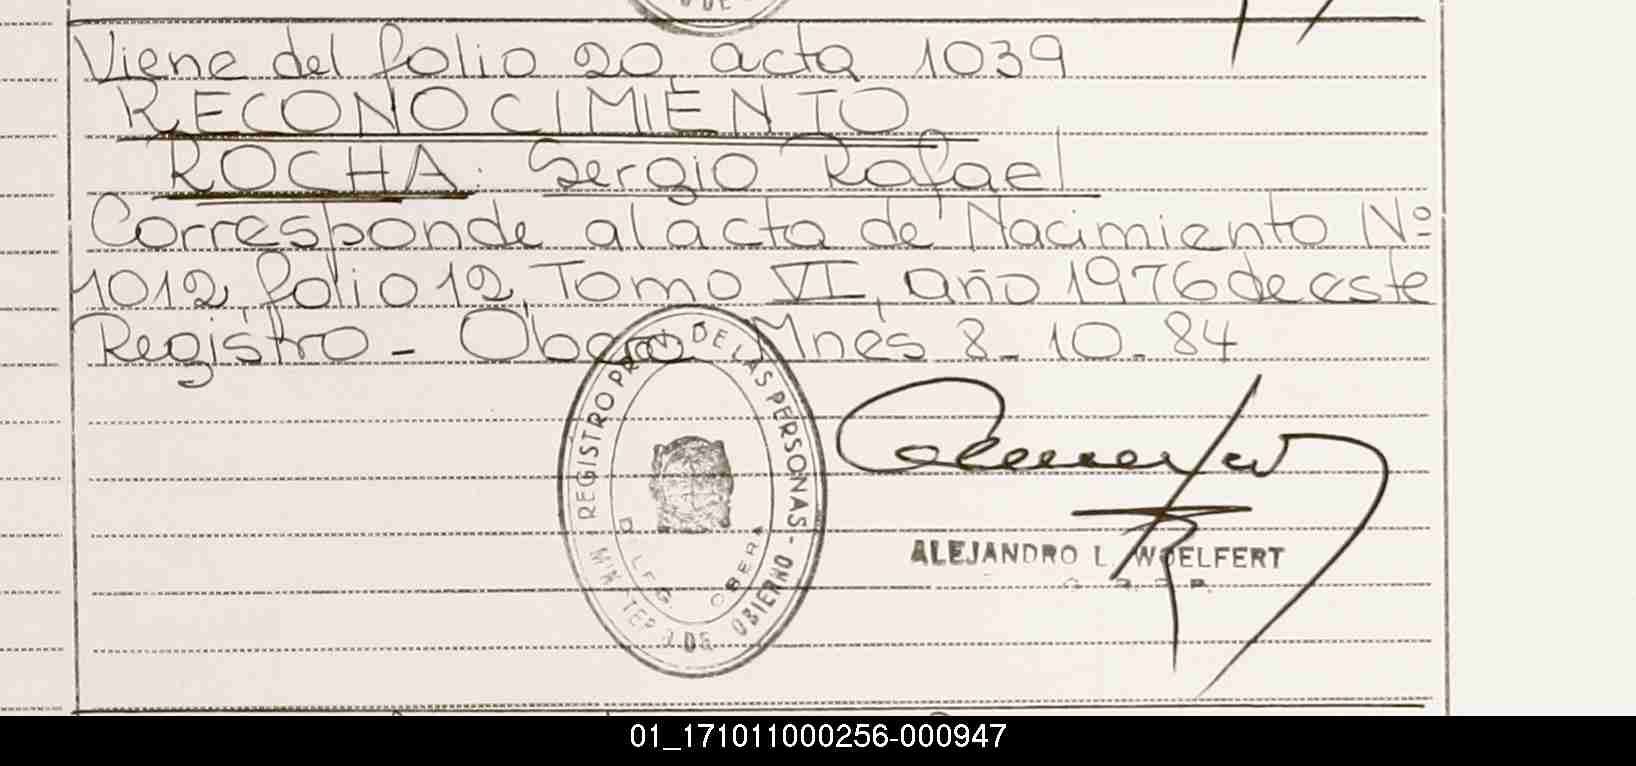 Viene del folio 20, acta 1039
RECONOCIMIENTO
ROCHA: Sergio Rafael
Corresponde al acta de Nacimiento Nº
1012, folio 12, Tomo VI, año 1976 de este
Registro - Oberá Mnes 8-10-84
REGISTRO PROV. DE LAS PERSONAS -
MINISTERIO DE GOBIERNO
DELEG. OBERA
ALEJANDRO L. WOELFERT
01_171011000256-000947